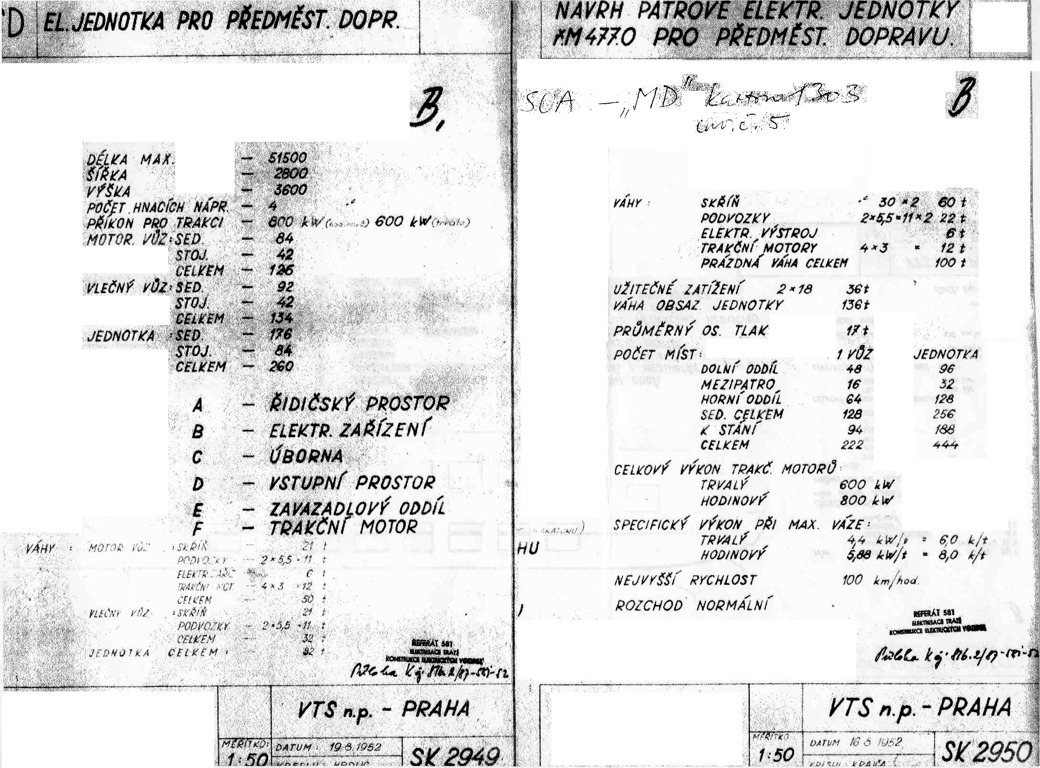 D EL. JEDNOTKA PRO PŘEDMĚST. DOPR.
B,
DÉLKA MAX. — 51500
ŠÍŘKA — 2800
VÝŠKA — 3600
POČET HNACÍCH NÁPR. — 4
PŘÍKON PRO TRAKCI — 800 kW (hodinově) 600 kW (trvale)
MOTOR. VŮZ: SED. — 84
STOJ. — 42
CELKEM — 126
VLEČNÝ VŮZ: SED. — 92
STOJ. — 42
CELKEM — 134
JEDNOTKA : SED. — 176
STOJ. — 84
CELKEM — 260
A — ŘIDIČSKÝ PROSTOR
B — ELEKTR. ZAŘÍZENÍ
C — ÚBORNA
D — VSTUPNÍ PROSTOR
E — ZAVAZADLOVÝ ODDÍL
F — TRAKČNÍ MOTOR
VÁHY : MOTOR VŮZ : SKŘÍŇ 21 t
PODVOZKY — 2×5,5 = 11 t
ELEKTR. ZAŘ. 6 t
TRAKČNÍ MOT. — 4×3 = 12 t
CELKEM 50 t
VLEČNÝ VŮZ : SKŘÍŇ 21 t
PODVOZKY 2×5,5 = 11 t
CELKEM 32 t
JEDNOTKA CELKEM : 82 t
REFERÁT 581
ELEKTRISACE TRATÍ
KONSTRUKCE ELEKTRICKÝCH VOZIDEL
Příloha
VTS n.p. - PRAHA
MĚŘÍTKO: 1:50
DATUM : 19.8.1952
SK 2949
NÁVRH PATROVÉ ELEKTR. JEDNOTKY
KM 477.0 PRO PŘEDMĚST. DOPRAVU.
SÚA — „MD" 1303
inv. č. 5
B
VÁHY : SKŘÍŇ 30 × 2 60 t
PODVOZKY 2×5,5=11×2 22 t
ELEKTR. VÝSTROJ 6 t
TRAKČNÍ MOTORY 4×3 = 12 t
PRÁZDNÁ VÁHA CELKEM 100 t
UŽITEČNÉ ZATÍŽENÍ 2 × 18 36 t
VÁHA OBSAZ. JEDNOTKY 136 t
PRŮMĚRNÝ OS. TLAK 17 t
POČET MÍST: 1 VŮZ JEDNOTKA
DOLNÍ ODDÍL 48 96
MEZIPATRO 16 32
HORNÍ ODDÍL 64 128
SED. CELKEM 128 256
K STÁNÍ 94 188
CELKEM 222 444
CELKOVÝ VÝKON TRAKČ. MOTORŮ:
TRVALÝ 600 kW
HODINOVÝ 800 kW
SPECIFICKÝ VÝKON PŘI MAX. VÁZE:
TRVALÝ 4,4 kW/t = 6,0 k/t
HU
HODINOVÝ 5,88 kW/t = 8,0 k/t
NEJVYŠŠÍ RYCHLOST 100 km/hod.
ROZCHOD NORMÁLNÍ
REFERÁT 581
ELEKTRISACE TRATÍ
KONSTRUKCE ELEKTRICKÝCH VOZIDEL
Příloha
VTS n.p. - PRAHA
MĚŘÍTKO: 1:50
DATUM 16 8 1952
SK 2950